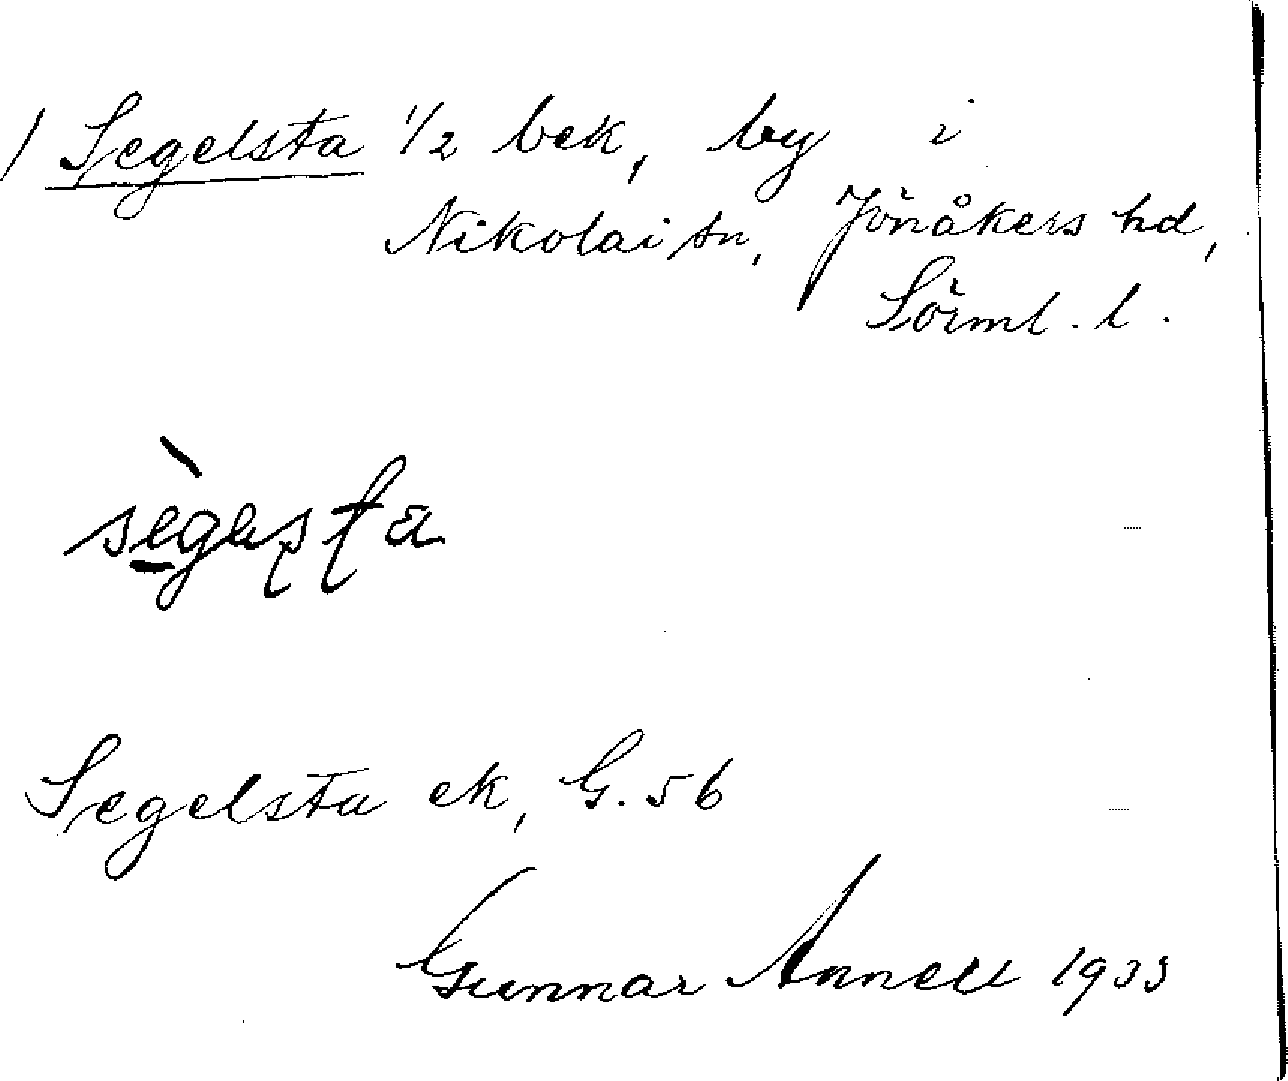 / Segelsta 1/2 bek, by i
Nikolai sn, Jönåkers hd,
Sörml. l.
Segelsta ek, G. 56
Gunnar Annell 1933